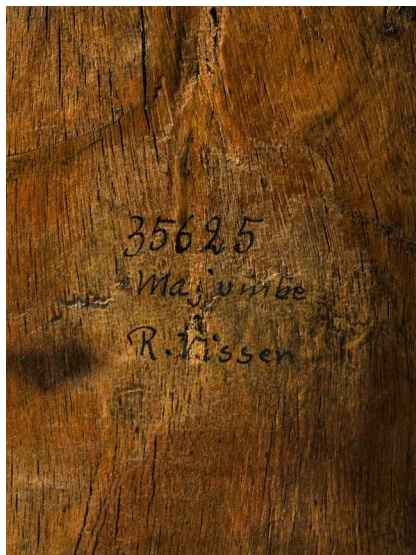 35625
Majumbe
R. Visser